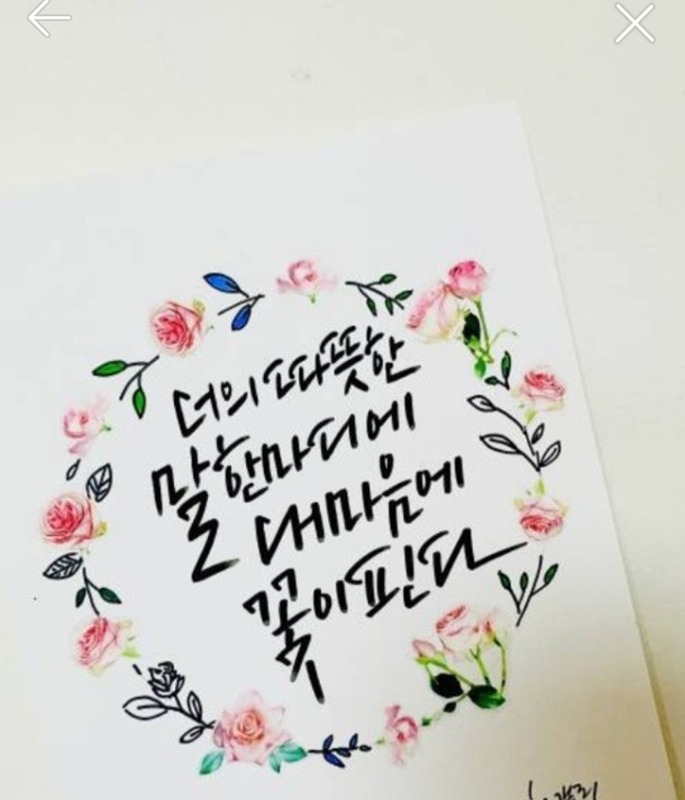 너의 따뜻한
말한마디에
내마음에
꽃이핀다